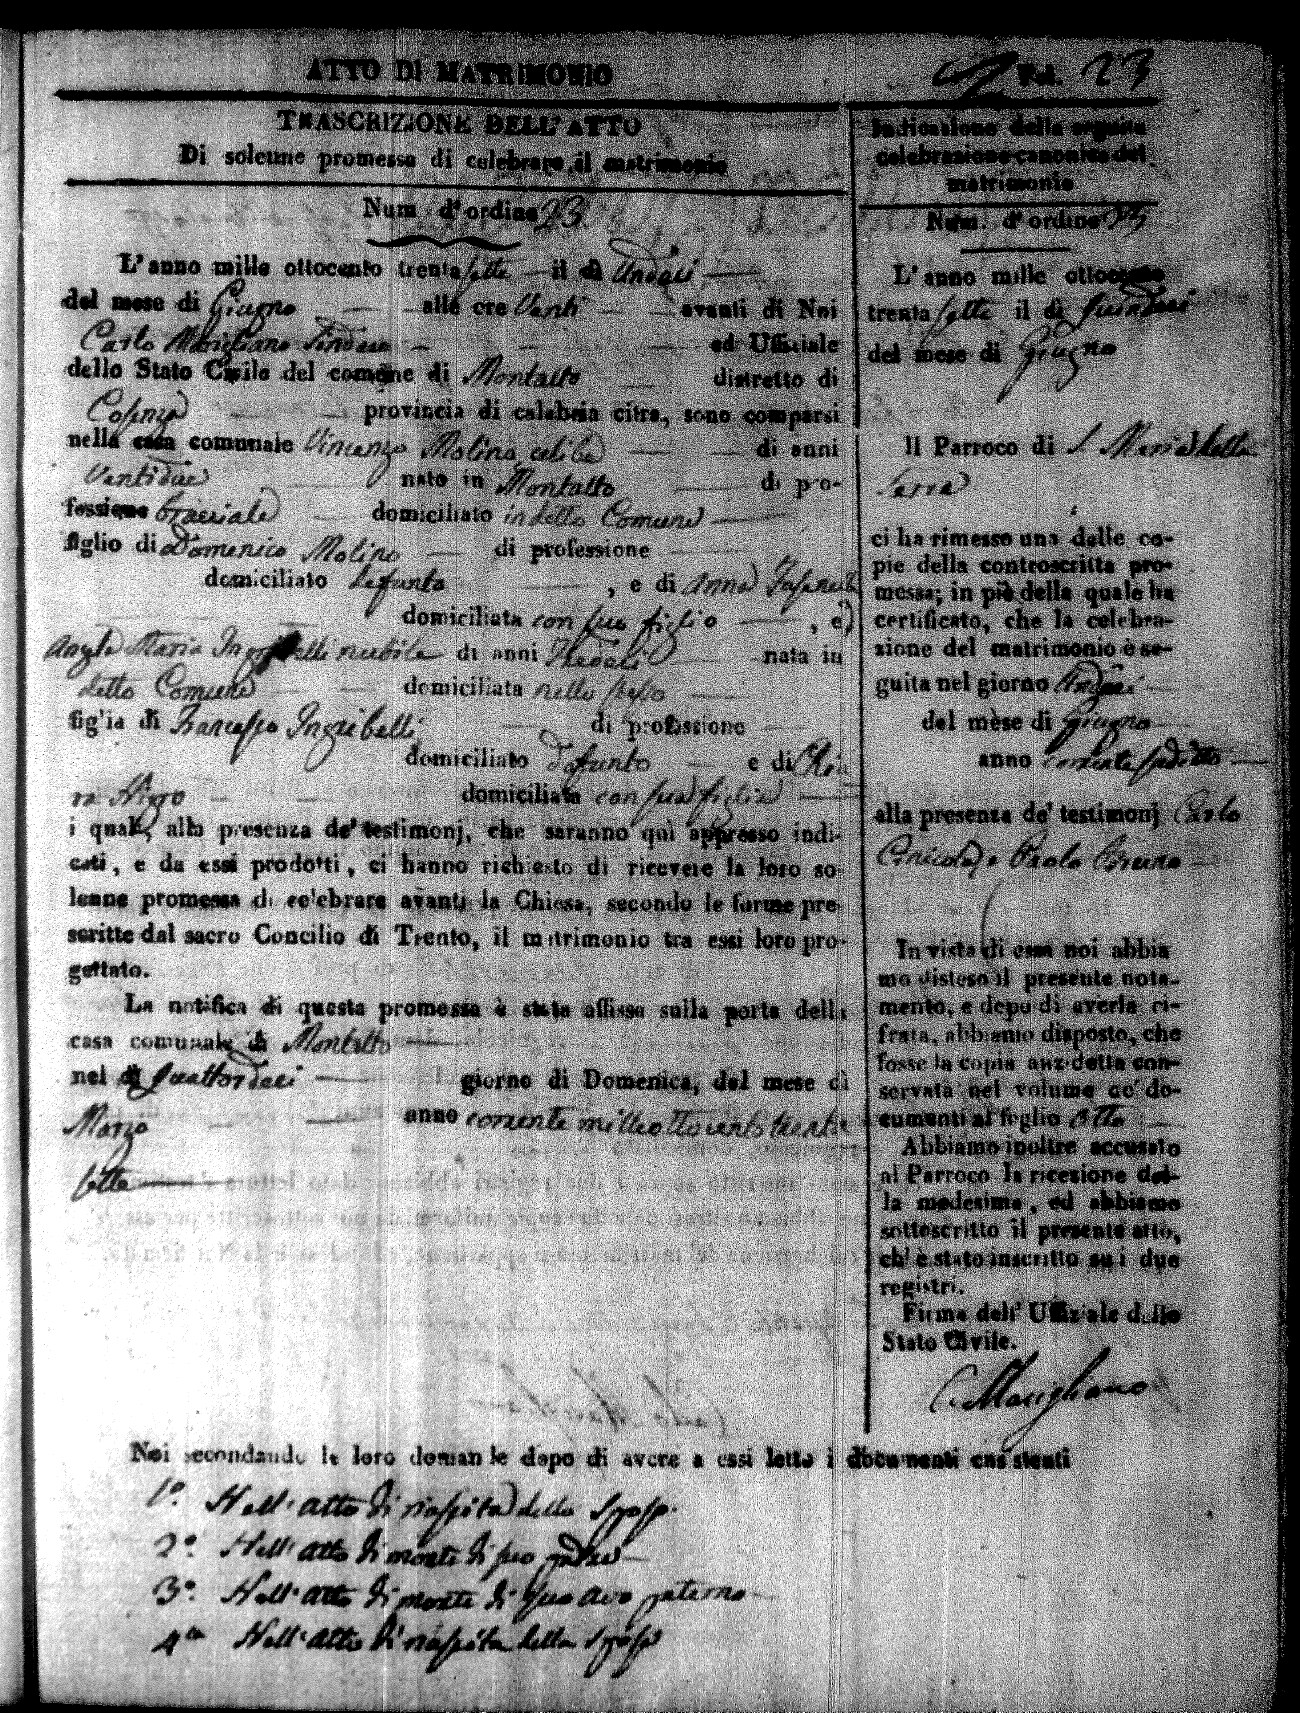 ATTO DI MATRIMONIO
Fol. 23
TRASCRIZIONE DELL'ATTO
Di solenne promessa di celebrare il matrimonio
Num d'ordine 23.
L'anno mille ottocento trenta sette il dì Undeci
del mese di Giugno alle ore Venti avanti di Noi
Carlo Marigliano Sindaco ed Uffiziale
dello Stato Civile del comune di Montalto distretto di
Cosenza provincia di calabria citra, sono comparsi
nella casa comunale Vincenzo Molino celibe di anni
Ventidue nato in Montalto di pro-
fessione bracciale domiciliato in detto Comune
figlio di Domenico Molino di professione
domiciliato defunto , e di Anna
domiciliata con suo figlio , e
Angela Maria nubile di anni nata in
detto Comune domiciliata nello stesso
figlia di Francesco Ingribelli di professione
domiciliato defunto e di Chia
ra domiciliata con sua figlia
i quali, alla presenza de' testimonj, che saranno quì appresso indi-
cati, e da essi prodotti, ci hanno richiesto di ricevere la loro so-
lenne promessa di celebrare avanti la Chiesa, secondo le forme pre-
scritte dal sacro Concilio di Trento, il matrimonio tra essi loro pro-
gettato.
La notifica di questa promessa è stata affissa sulla porta della
casa comunale di Montalto
nel dì Quattordeci giorno di Domenica, del mese di
Marzo anno corrente milleottocento trenta
sette
Indicazione della seguita
celebrazione canonica del
matrimonio
Num. d'ordine 23
L'anno mille ottocento
trenta sette il dì Quindeci
del mese di Giugno
Il Parroco di S. Maria della
Serra
ci ha rimesso una delle co-
pie della controscritta pro-
messa; in piè della quale ha
certificato, che la celebra-
zione del matrimonio è se-
guita nel giorno Undeci
del mèse di Giugno
anno corrente suddetto
alla presenza de' testimonj Carlo
e Paolo Bruno
In vista di essa noi abbia-
mo disteso il presente nota-
mento, e dopo di averla ci-
frata, abbiamo disposto, che
fosse la copia anzidetta con-
servata nel volume de' do-
cumenti al foglio otto
Abbiamo inoltre accusato
al Parroco la ricezione del-
la medesima, ed abbiamo
sottoscritto il presente atto,
ch'è stato inscritto su i due
registri.
Firma dell' Uffiziale dello
Stato Civile.
C. Marigliano
Noi secondando le loro domande dopo di avere a essi letto i documenti consistenti
1.º Nell'atto di nascita dello Sposo.
2.º Nell'atto di morte di suo padre
3.º Nell'atto di morte di suo avo paterno
4.º Nell'atto di nascita della Sposa